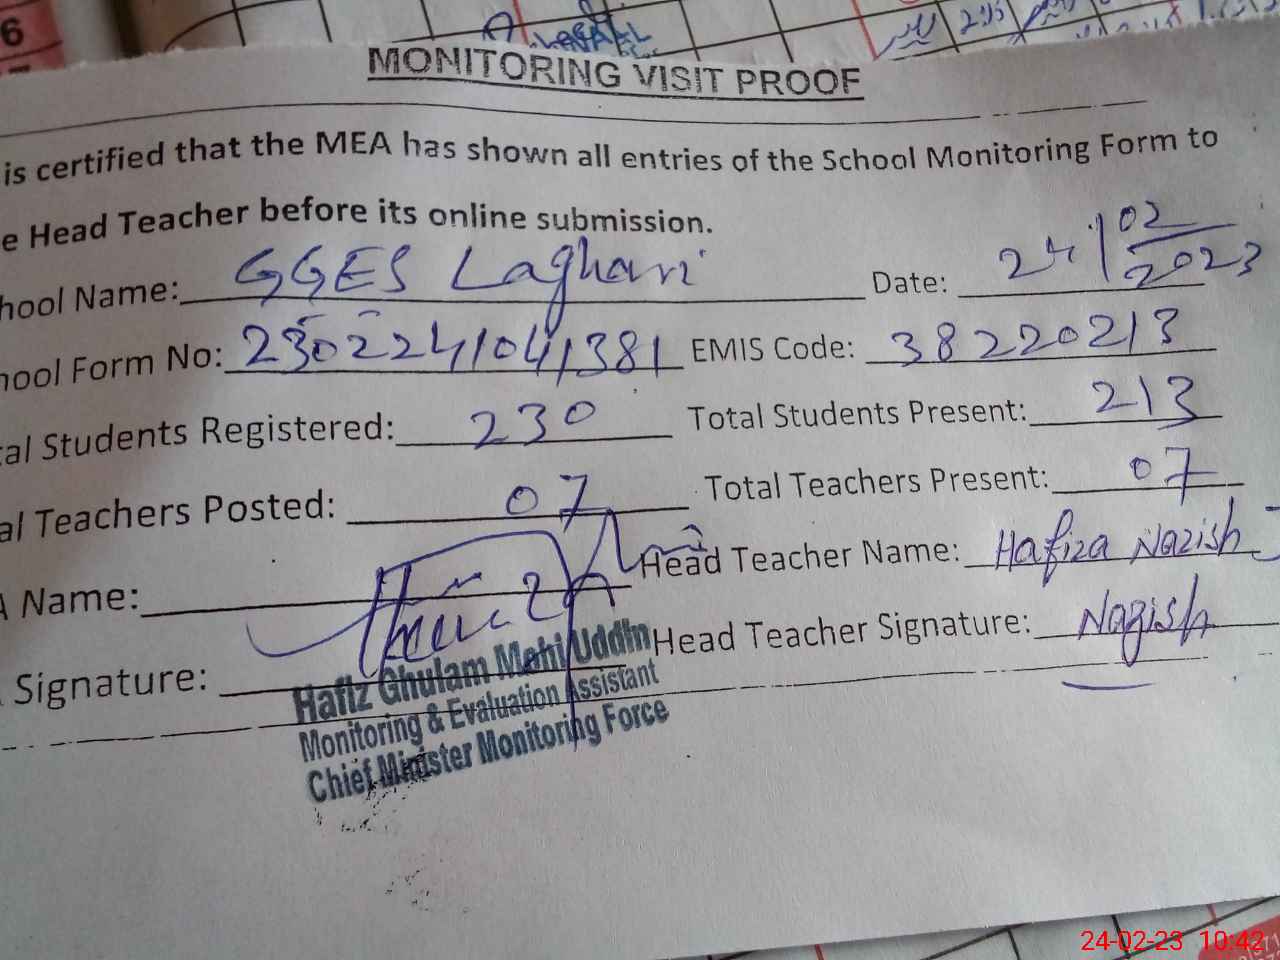 6
MONITORING VISIT PROOF
is certified that the MEA has shown all entries of the School Monitoring Form to
e Head Teacher before its online submission.
hool Name: GGES Laghari Date: 24/02/2023
hool Form No: 2302241041381 EMIS Code: 38220213
al Students Registered: 230 Total Students Present: 213
al Teachers Posted: 07 Total Teachers Present: 07
A Name: Head Teacher Name: Hafiza Nazish
Signature: Head Teacher Signature: Nazish
Hafiz Ghulam Mehi Uddin
Monitoring & Evaluation Assistant
Chief Minister Monitoring Force
24-02-23 10:42